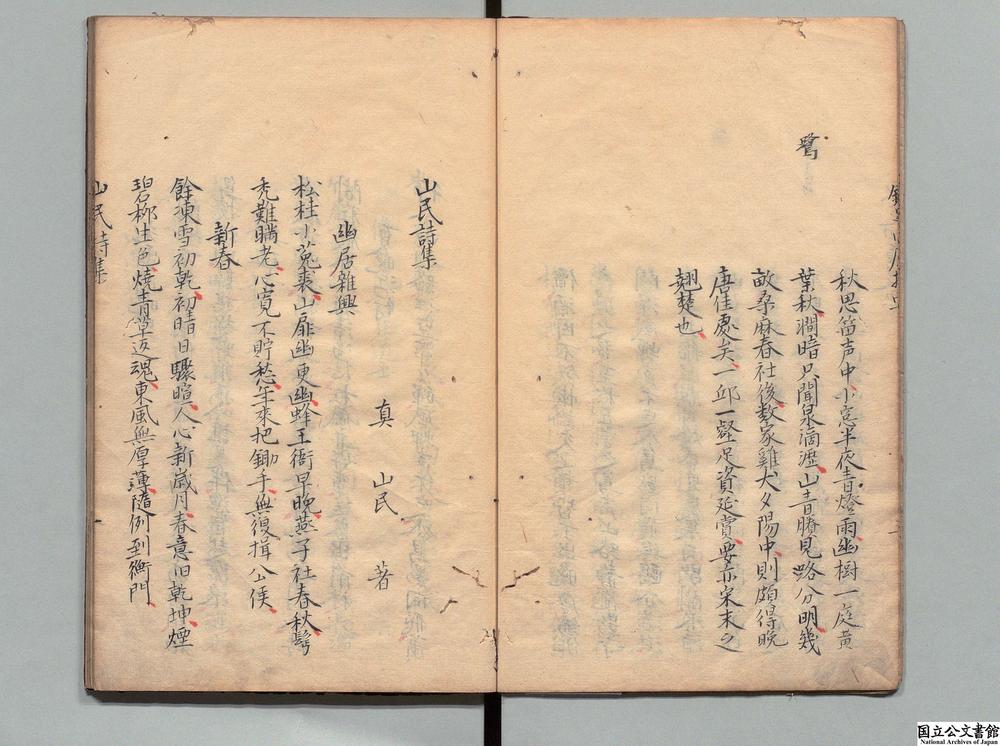 秋思笛声中小窓半夜青燈雨幽樹一庭黄
葉秋澗暗只聞泉滴瀝山青勝見路分明幾
畝桑麻春社後数家雞犬夕陽中則頗得晩
唐佳處矣一邱一壑足資延賞要亦宋末之
翹楚也
鷺
山民詩集
真 山民 著
幽居雜興
松桂小菟裘山扉幽更幽蜂王衙早晩燕子社春秋鬂
禿難瞞老心寛不貯愁年來把鋤手無復揖公侯
新春
餘凍雪初乾初晴日驟暄人心新歳月春意旧乾坤煙
碧柳生色焼青草返魂東風無厚薄隨例到衡門
山民詩集
国立公文書館
National Archives of Japan